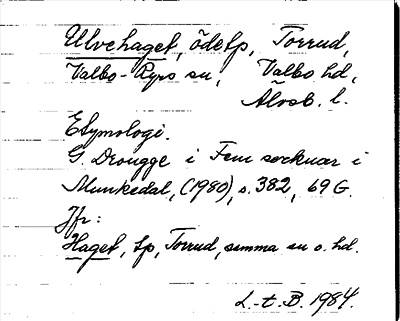 Ulvehaget, ödetp, Torrud,
Valbo-Ryrs sn, Valbo hd,
Älvsb. l.
Etymologi.
G. Drougge i Fem socknar i
Munkedal, (1980), s. 382, 69 G.
Jfr:
Haget, tp, Torrud, samma sn o. hd.
L.-t. B. 1984.